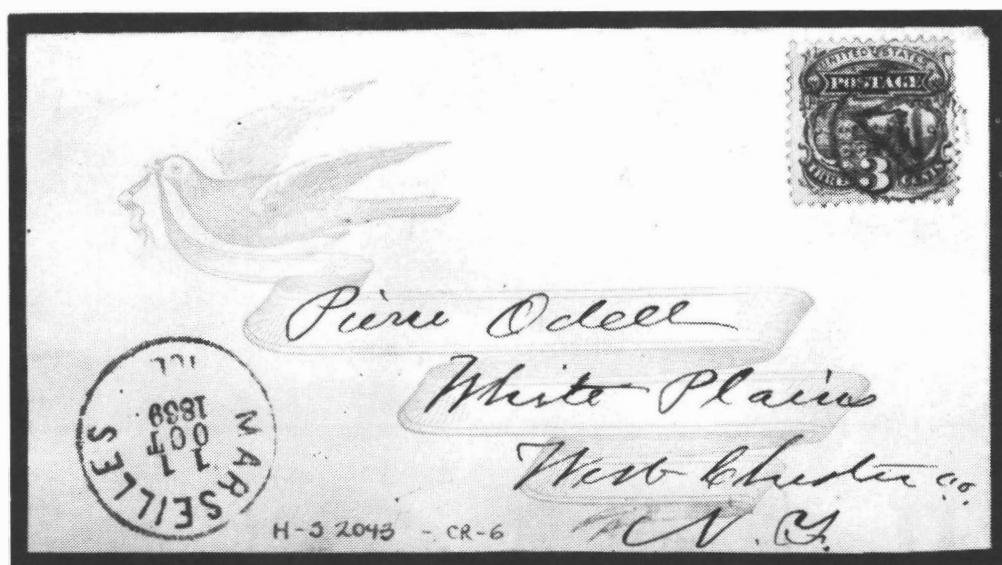 UNITED STATES
POSTAGE
THREE 3 CENTS
Pierre Odell
White Plains
West Chester Co.
N. Y.
MARSEILLES
11
OCT
1869
ILL
H-S 2043 - CR-6